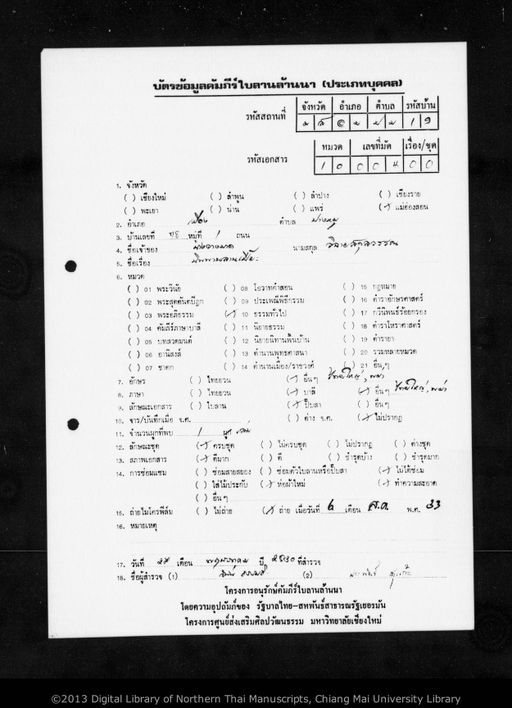 บัตรข้อมูลคัมภีร์ใบลานล้านนา (ประเภทบุคคล)
จังหวัด อำเภอ ตำบล รหัสบ้าน
รหัสสถานที่
หมวด เลขที่มัด เรื่อง/ชุด
รหัสเอกสาร 1 0 0 0 4 0 0
1. จังหวัด
( ) เชียงใหม่ ( ) ลำพูน ( ) ลำปาง ( ) เชียงราย
( ) พะเยา ( ) น่าน ( ) แพร่ (✓) แม่ฮ่องสอน
2. อำเภอ เมือง ตำบล ปางหมู
3. บ้านเลขที่ หมู่ที่ 1 ถนน
4. ชื่อเจ้าของ นามสกุล
5. ชื่อเรื่อง
6. หมวด
( ) 01 พระวินัย ( ) 08 โอวาทคำสอน ( ) 15 กฎหมาย
( ) 02 พระสุตตันตปิฎก ( ) 09 ประเพณีพิธีกรรม ( ) 16 ตำราอักษรศาสตร์
( ) 03 พระอภิธรรม (✓) 10 ธรรมทั่วไป ( ) 17 กวีนิพนธ์ร้อยกรอง
( ) 04 คัมภีร์ภาษาบาลี ( ) 11 นิยายธรรม ( ) 18 ตำราโหราศาสตร์
( ) 05 บทสวดมนต์ ( ) 12 นิยายนิทานพื้นบ้าน ( ) 19 ตำรายา
( ) 06 อานิสงส์ ( ) 13 ตำนานพุทธศาสนา ( ) 20 รวมหลายหมวด
( ) 07 ชาดก ( ) 14 ตำนานเมือง/ราชวงศ์ ( ) 21 อื่นๆ
7. อักษร ( ) ไทยยวน (✓) อื่นๆ ไทยใหญ่, พม่า
8. ภาษา ( ) ไทยยวน (✓) บาลี (✓) อื่นๆ ไทยใหญ่, พม่า
9. ลักษณะเอกสาร ( ) ใบลาน (✓) ปั๊บสา ( ) อื่นๆ
10. จาร/บันทึกเมื่อ จ.ศ. ( ) ค่าง จ.ศ. (✓) ไม่ปรากฏ
11. จำนวนผูกที่พบ 1
12. ลักษณะชุด (✓) ครบชุด ( ) ไม่ครบชุด ( ) ไม่ปรากฏ ( ) ค่างชุด
13. สภาพเอกสาร (✓) ดีมาก ( ) ดี ( ) ชำรุดบ้าง ( ) ชำรุดมาก
14. การซ่อมแซม ( ) ซ่อมสายสยอง ( ) ซ่อมตัวใบลานหรือปั๊บสา (✓) ไม่ได้ซ่อม
( ) ใส่ไม้ประกับ (✓) ห่อผ้าใหม่ (✓) ทำความสะอาด
( ) อื่นๆ
15. ถ่ายไมโครฟิล์ม ( ) ไม่ถ่าย (✓) ถ่าย เมื่อวันที่ 6 เดือน ส.ค. พ.ศ. 33
16. หมายเหตุ
17. วันที่ 27 เดือน พฤษภาคม ปี 2530 ที่สำรวจ
18. ชื่อผู้สำรวจ (1) (2)
โครงการอนุรักษ์คัมภีร์ใบลานล้านนา
โดยความอุปถัมภ์ของ รัฐบาลไทย-สหพันธ์สาธารณรัฐเยอรมัน
โครงการศูนย์ส่งเสริมศิลปวัฒนธรรม มหาวิทยาลัยเชียงใหม่
©2013 Digital Library of Northern Thai Manuscripts, Chiang Mai University Library